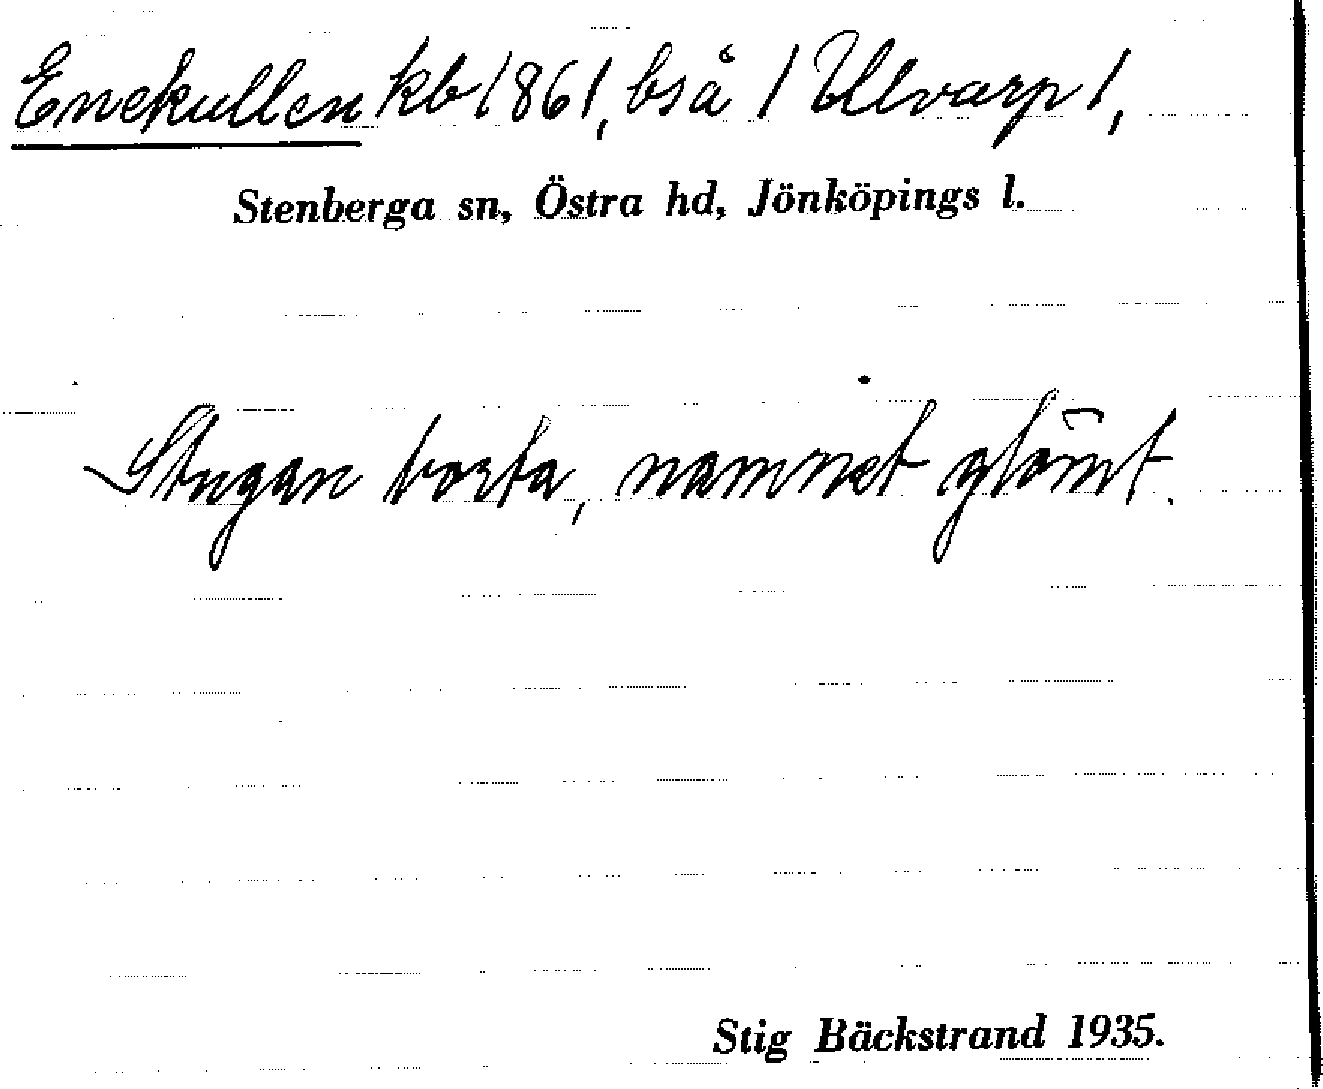 Enekullen kb 1861, bså / Ulvarp 1,
Stenberga sn, Östra hd, Jönköpings l.
Stugan borta, namnet glömt.
Stig Bäckstrand 1935.